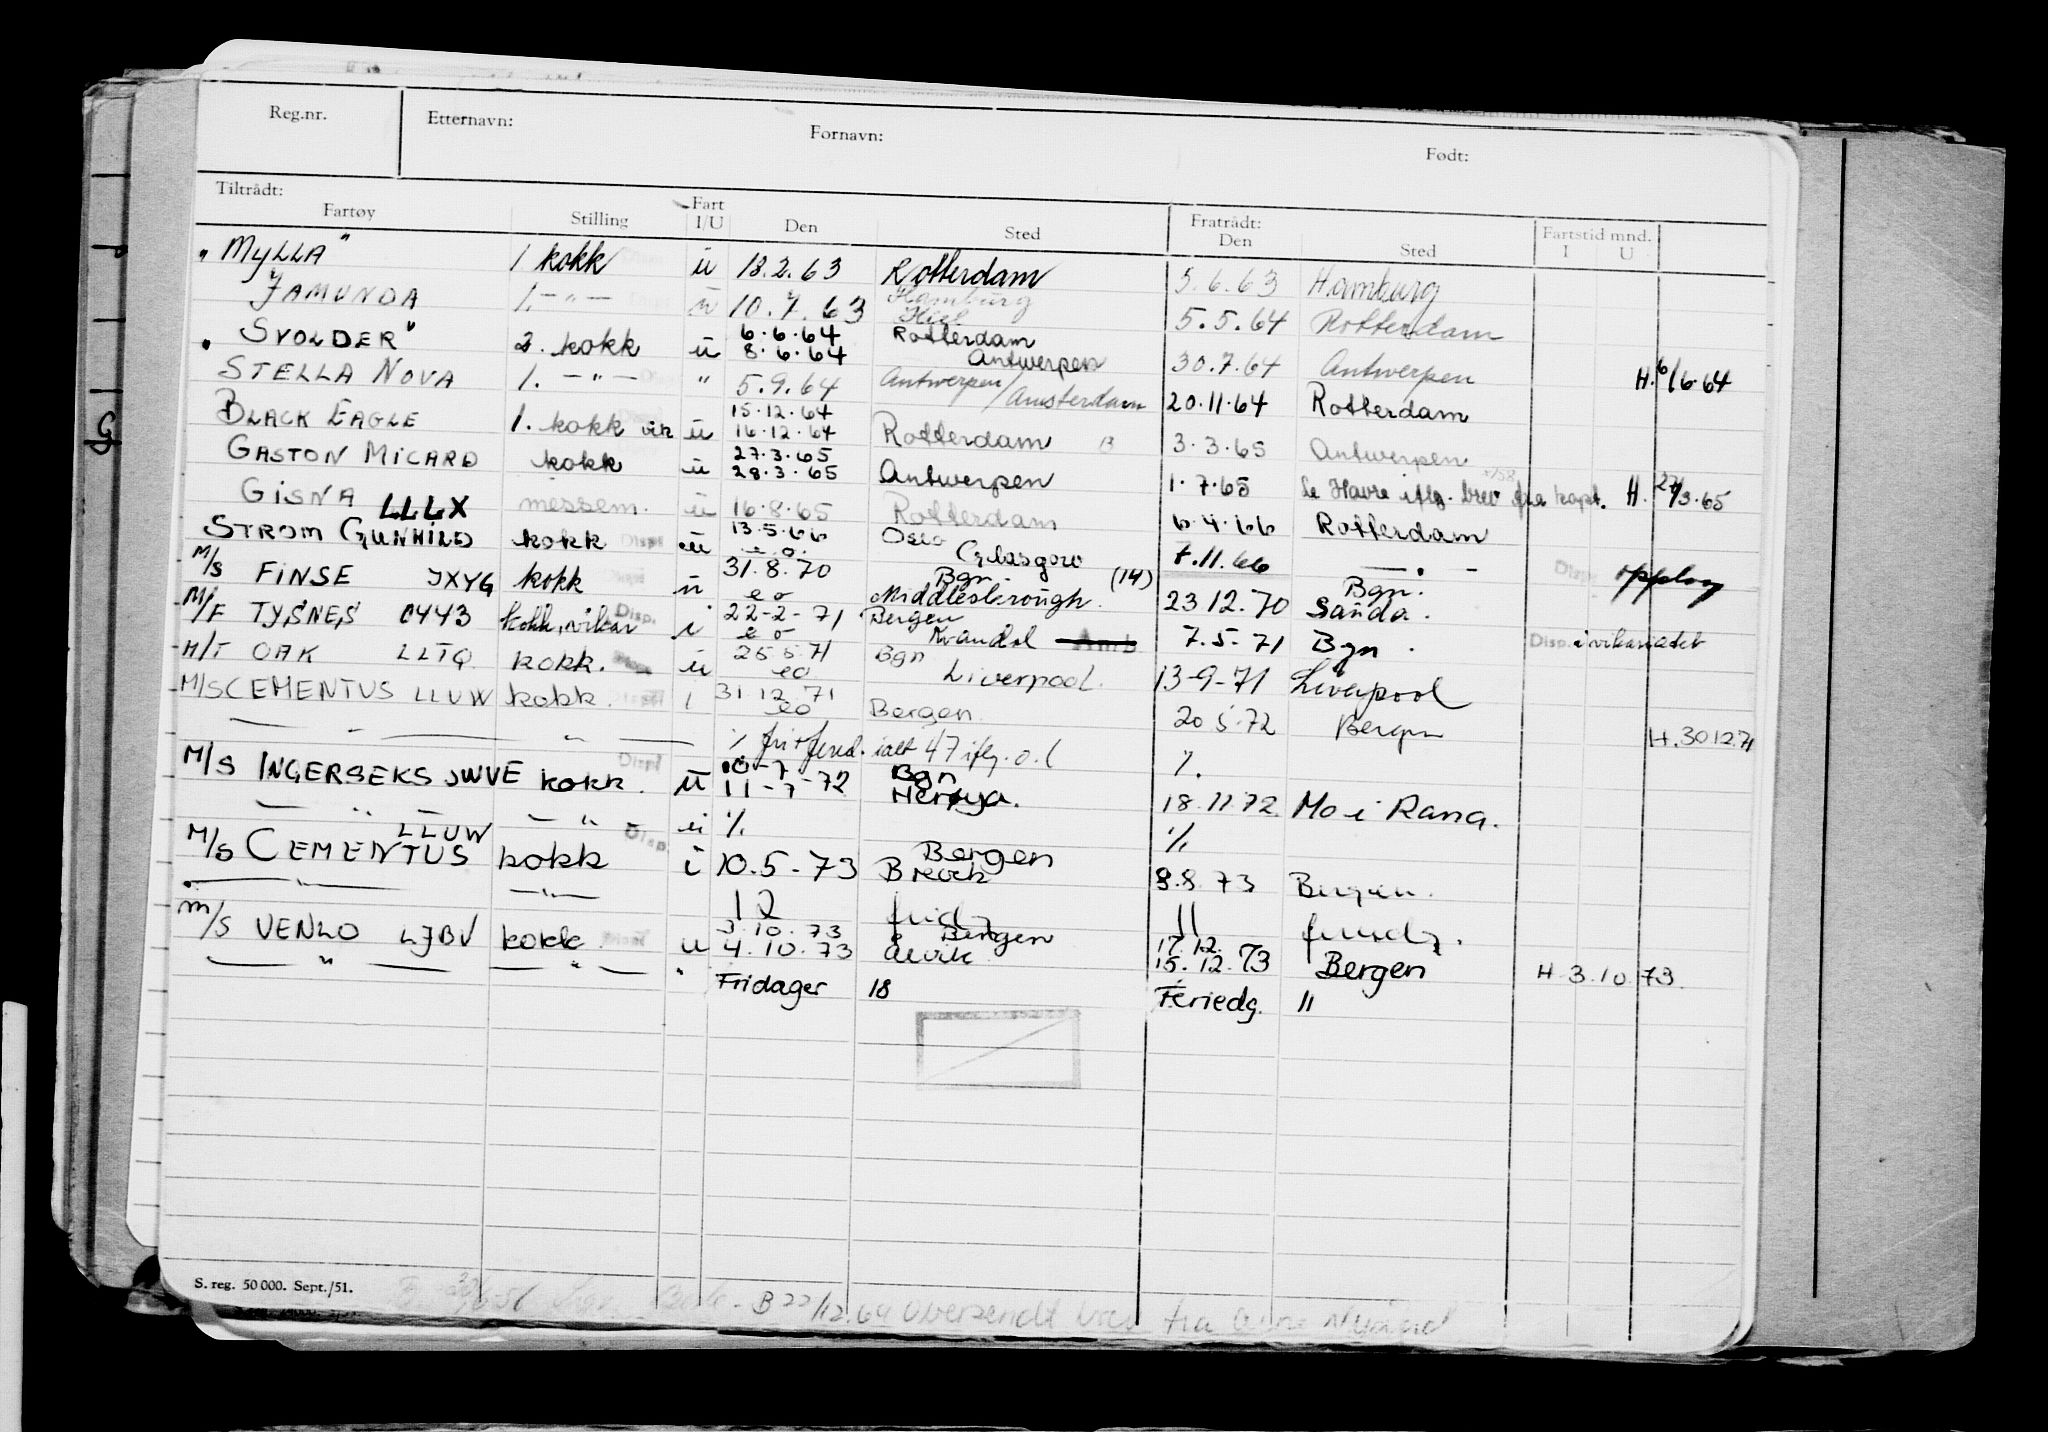 Reg.nr. Etternavn: Fornavn: Født:
Tiltrådt: Fratrådt:
Fartøy Stilling Fart I/U Den Sted Den Sted Fartstid mnd. I U
"MYLLA" 1 kokk u 18.2.63 Rotterdam 5.6.63 Hamburg
JAMUNDA 1. -"- u 10.7.63 Hamburg Kiel 5.5.64 Rotterdam
"SVOLDER" 2. kokk u 6.6.64 Rotterdam 8.6.64 Antwerpen 30.7.64 Antwerpen H. 6/6.64
STELLA NOVA 1. -"- " 5.9.64 Antwerpen/Amsterdam 20.11.64 Rotterdam
BLACK EAGLE 1. kokk vik u 15.12.64 16.12.64 Rotterdam B 3.3.65 Antwerpen
GASTON MICARD kokk u 27.3.65 28.3.65 Antwerpen 1.7.65 Le Havre iflg. brev fra kapt. H. 27/3.65
GISNA LLLX messem. u 16.8.65 Rotterdam 6.4.66 Rotterdam
STROM GUNHILD kokk Disp u 13.5.66 Oslo e.o. Glasgow 7.11.66 - " - Disp. opplag
M/S FINSE JXYG kokk u 31.8.70 Bgn. (14) e o Middlesbrough. 23 12.70 Bgn. Sanda.
M/F TYSNES 0443 kokk, vikar Disp. i 22-2-71 Bergen e o Kvandal Amb 7.5-71 Bgn. Disp. i vikariatet
M/T OAK LLTQ kokk. u 25 5 71 Bgn eo Liverpool. 13-9-71 Liverpool
M/S CEMENTUS LLUW kokk. i 31.12.71 eo Bergen 20 5.72 Bergen H. 30 12.71
— " — " — % fri+feried. ialt 47 iflg. o.l %.
M/S INGERSEKS JWVE kokk. Disp u 10-7 Bgn 11-7-72 Herøya. 18.11.72 Mo i Rana.
— " — — " — u % %
M/S CEMENTUS LLUW kokk Disp. i 10.5-73 Bergen Brevik 8.8.73 Bergen.
— " — — " — 12 fridg 11 feriedg.
M/S VENLO LJBV kokk u 3.10.73 Bergen 4.10.73 Ålvik 17.12. 15.12.73 Bergen H 3.10.73.
— " — — " — " Fridager 18 Feriedg. 11
S. reg. 50 000. Sept./51.
B 22/12.64 oversendt brev fra